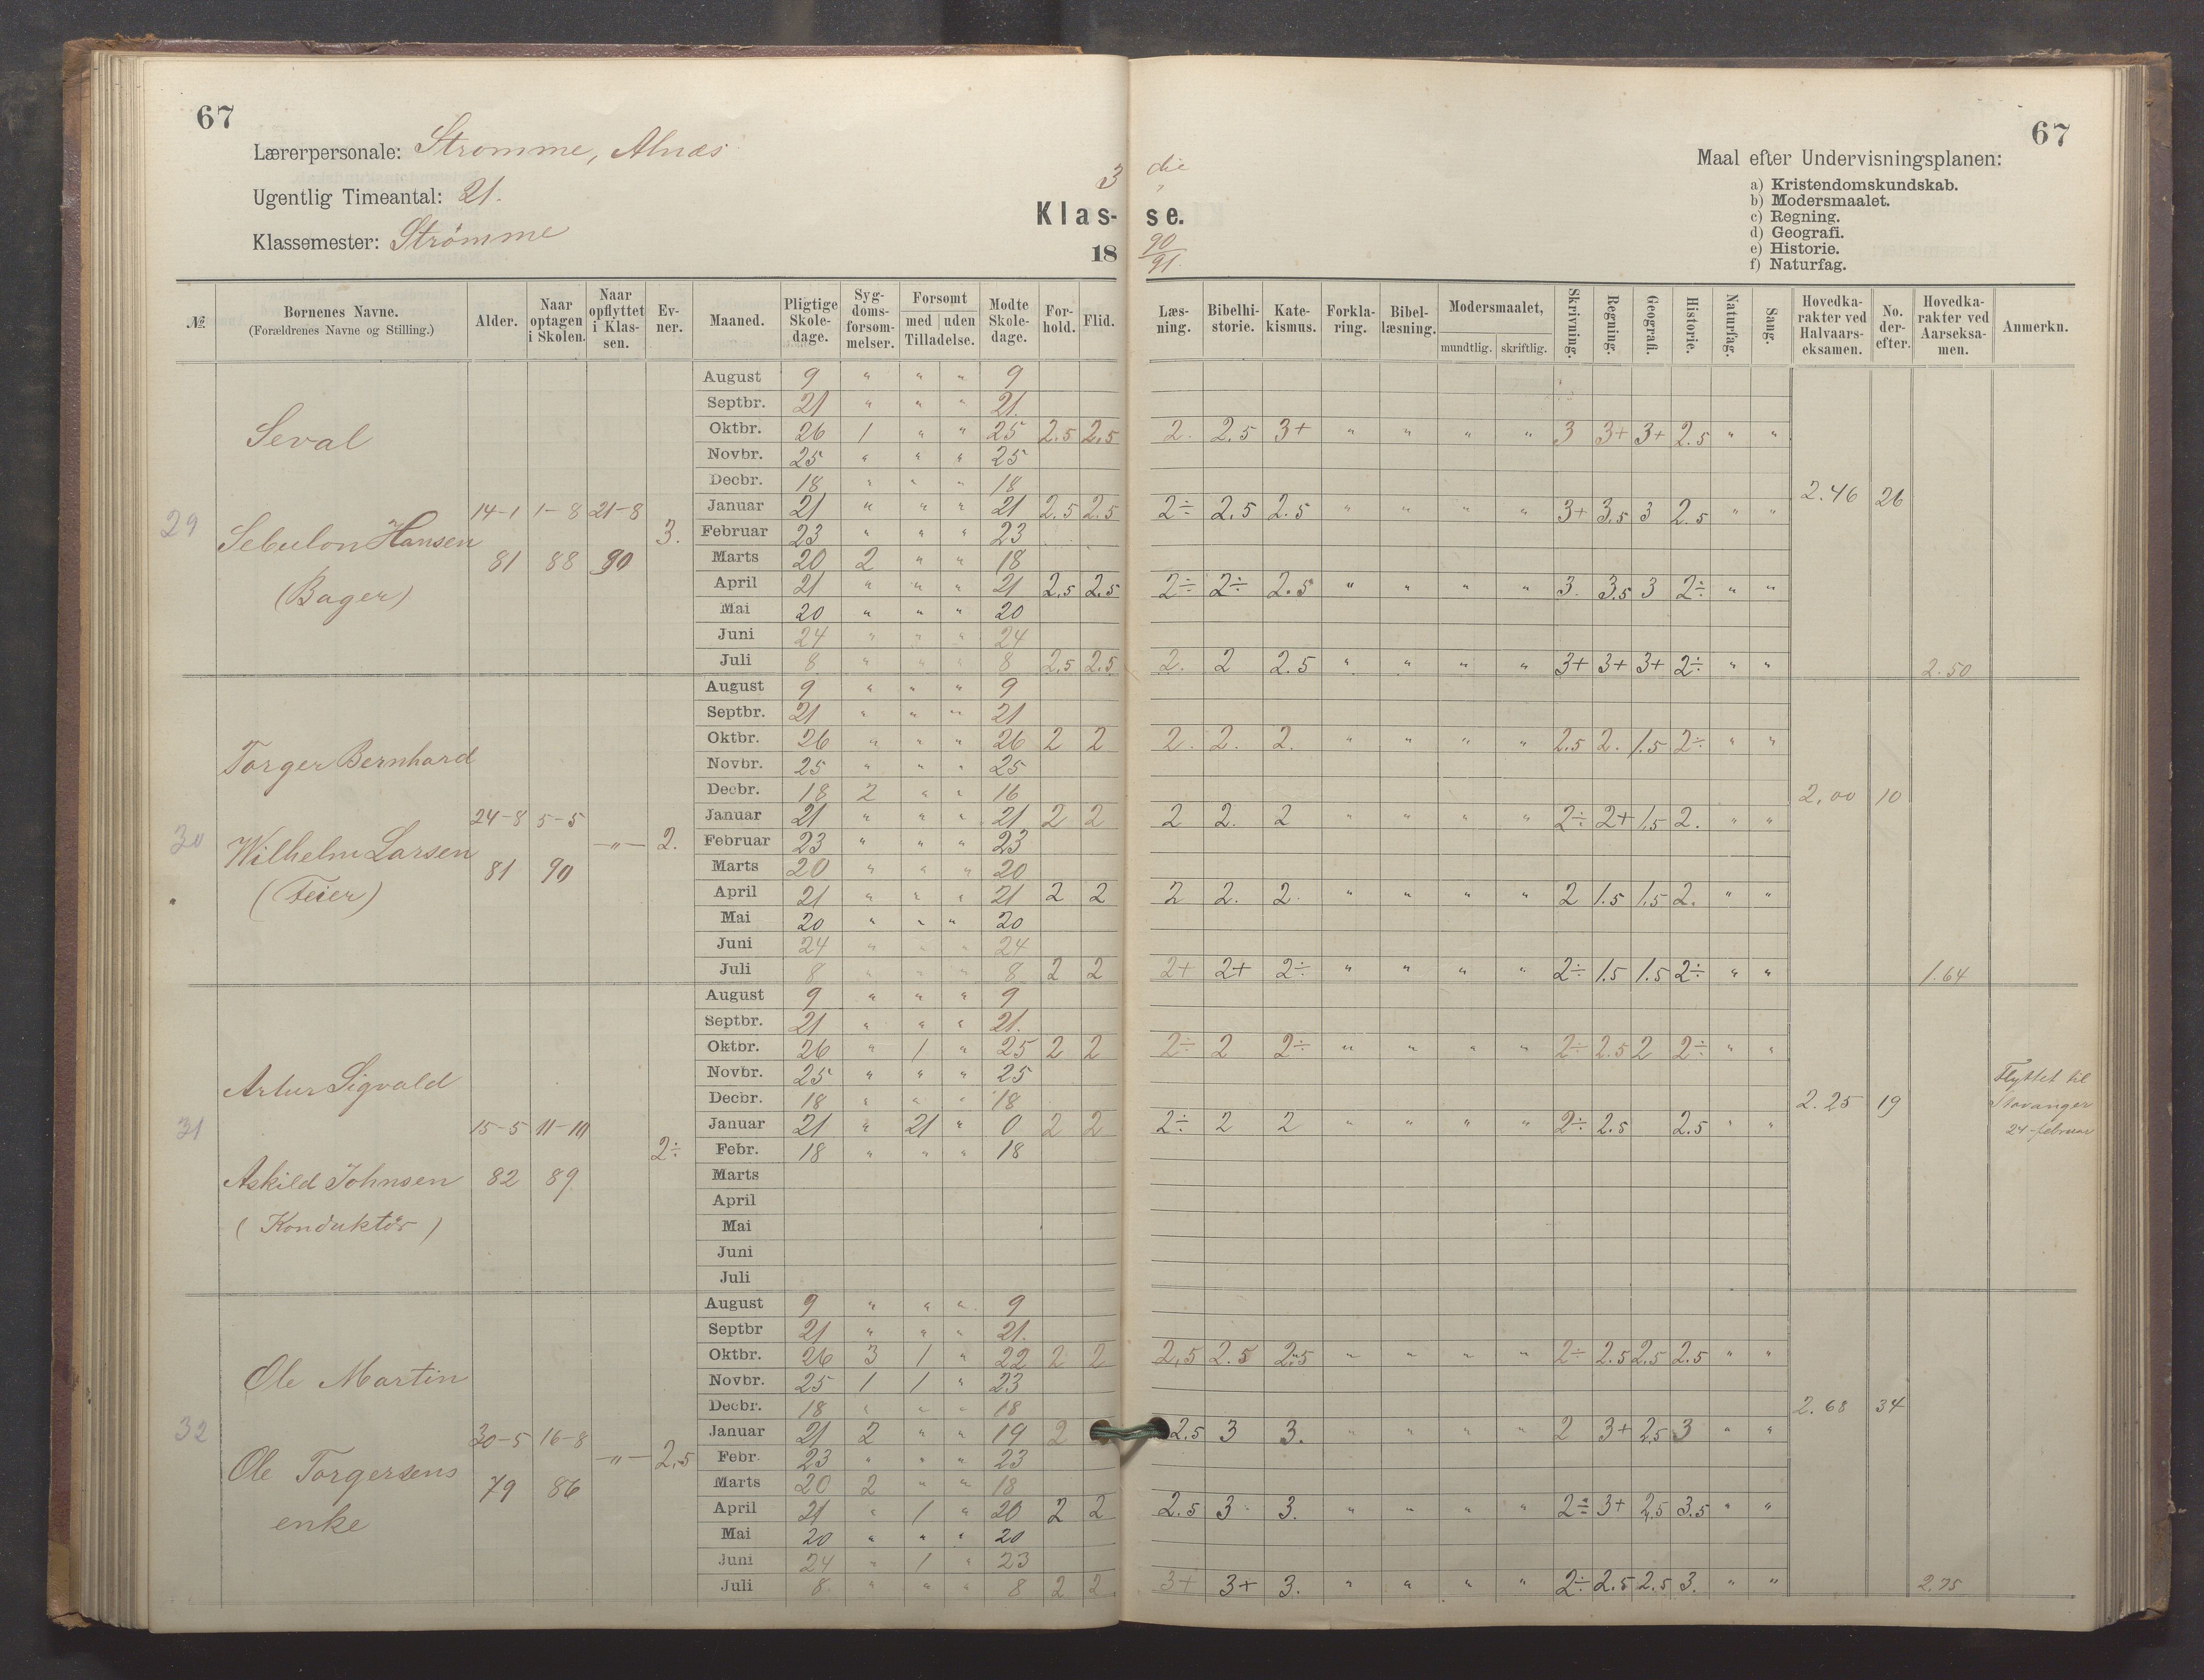 67
67
Lærerpersonale: Strømme, Alnæs
Ugentlig Timeantal: 21.
Klassemester: Strømme
3 die
Klas- se.
18 90/91.
Maal efter Undervisningsplanen:
a) Kristendomskundskab.
b) Modersmaalet.
c) Regning.
d) Geografi.
e) Historie.
f) Naturfag.
№ | Børnenes Navne. (Forældrenes Navne og Stilling.) | Alder. | Naar optagen i Skolen. | Naar opflyttet i Klassen. | Evner. | Maaned. | Pligtige Skoledage. | Sygdomsforsømmelser. | Forsømt med Tilladelse. | uden Tilladelse. | Mødte Skoledage. | Forhold. | Flid. | Læsning. | Bibelhistorie. | Katekismus. | Forklaring. | Bibellæsning. | Modersmaalet, mundtlig. | skriftlig. | Skrivning. | Regning. | Geografi. | Historie. | Naturfag. | Sang. | Hovedkarakter ved Halvaarseksamen. | No. derefter. | Hovedkarakter ved Aarseksamen. | Anmerkn.
29 Seval
Sebulon Hansen
(Bager)
14-1 81
1-8 88
21-8 90
3.
August 9 " " " 9
Septbr. 21 " " " 21.
Oktbr. 26 1 " " 25 2.5 2.5 2. 2.5 3+ " " " " 3 3+ 3+ 2.5 " "
Novbr. 25 " " " 25
Decbr. 18 " " " 18
Januar 21 " " " 21 2.5 2.5 2÷ 2.5 2.5 " " " " 3+ 3.5 3 2.5 " "
2.46 26
Februar 23 " " " 23
Marts 20 2 " " 18
April 21 " " " 21 2.5 2.5 2÷ 2÷ 2.5 " " " " 3. 3.5 3 2÷ " "
Mai 20 " " " 20
Juni 24 " " " 24
Juli 8 " " " 8 2.5 2.5 2. 2 2.5 " " " " 3+ 3+ 3+ 2÷ " " 2.50
30 Torger Bernhard
Wilhelm Larsen
(Feier)
24-8 81
5-5 90
—"—
2.
August 9 " " " 9
Septbr. 21 " " " 21
Oktbr. 26 " " " 26 2 2 2. 2. 2. " " " " 2.5 2. 1.5 2÷ " "
Novbr. 25 " " " 25
Decbr. 18 2 " " 16
2.00 10
Januar 21 " " " 21 2 2 2 2. 2 " " " " 2÷ 2+ 1.5 2. " "
Februar 23 " " " 23
Marts 20 " " " 20
April 21 " " " 21 2 2 2 2. 2. " " " " 2 1.5 1.5 2. " "
Mai 20 " " " 20
Juni 24 " " " 24
Juli 8 " " " 8 2 2 2+ 2+ 2÷ " " " " 2÷ 1.5 1.5 2÷ " " 1.64
31 Artur Sigvald
Askild Johnsen
(Konduktør)
15-5 82
11-10 89
2÷
August 9 " " " 9
Septbr. 21 " " " 21.
Oktbr. 26 " 1 " 25 2 2 2÷ 2 2÷ " " " " 2÷ 2.5 2 2÷ " "
Novbr. 25 " " " 25
Decbr. 18 " " " 18
2.25 19
Flyttet til
Stavanger
24-februar
Januar 21 " 21 " 0 2 2 2÷ 2 2 " " " " 2÷ 2.5 2.5 " "
Febr. 18 " " " 18
Marts
April
Mai
Juni
Juli
32 Ole Martin
Ole Torgersens
enke
30-5 79
16-8 86
—"—
2.5
August 9 " " " 9
Septbr 21 " " " 21.
Oktbr. 26 3 1 " 22 2 2 2,5 2.5 2.5 " " " " 2÷ 2.5 2.5 2.5 " "
Novbr. 25 1 1 " 23
Decbr. 18 " " " 18
2.68 34
Januar 21 2 " " 19 2 2.5 3 3. " " " " 2 3+ 2.5 3 " "
Febr. 23 " " " 23
Marts 20 2 " " 18
April 21 " 1 " 20 2 2 2.5 3 3. " " " " 2÷ 3+ 2.5 3.5 " "
Mai 20 " " " 20
Juni 24 " 1 " 23
Juli 8 " " " 8 2 2 3+ 3+ 3. " " " " 2÷ 2.5 2.5 3. " " 2.75